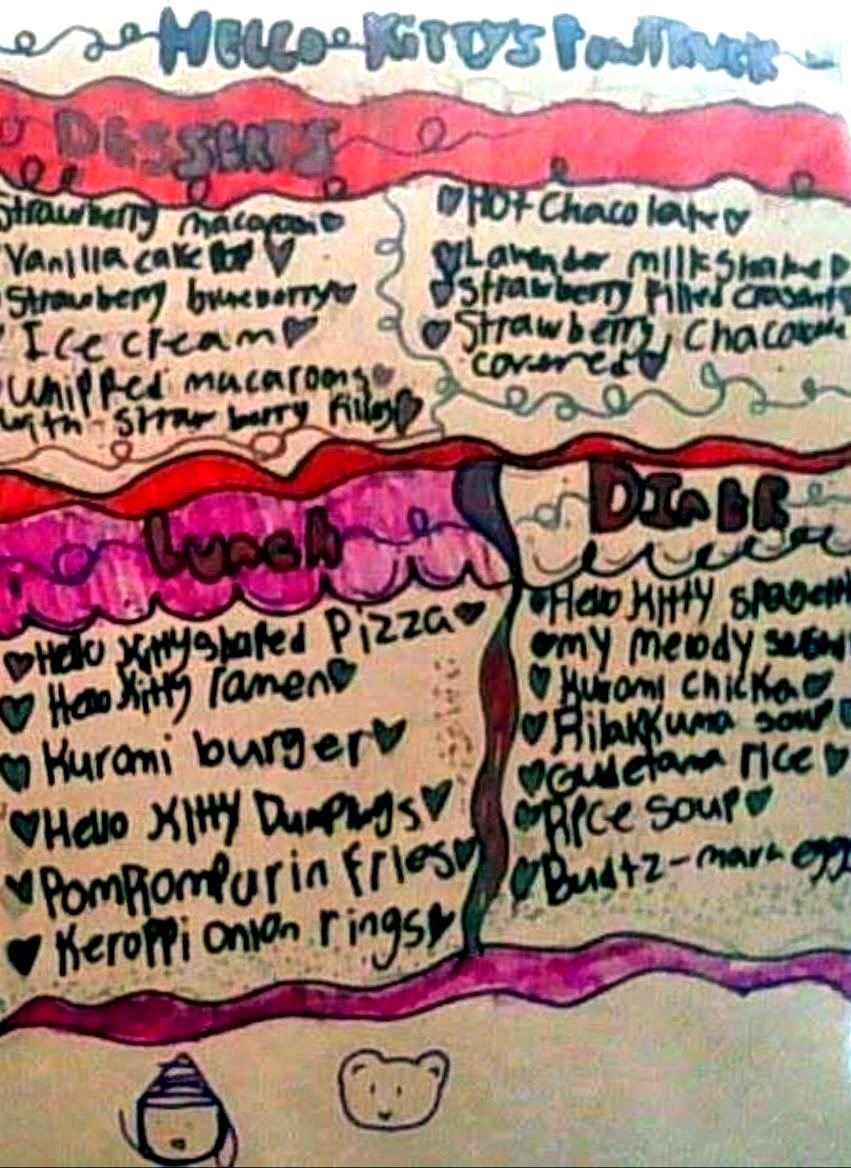 HELLO KITTY'S
DESSERTS
Strawberry macaroni
Vanilla cake
Strawberry
Ice cream
Whipped macaroons
with strawberry
Hot Chacolate
Lavender milkshake
Strawberry filled
Strawberry, Chaco
covered
Lunch
Hello Kitty shaped Pizza
Hello Kitty ramen
Kuromi burger
Hello Kitty Dumplings
Pompompurin fries
Keroppi onion rings
Hello Kitty
my melody
Kuromi chicken
Rilakkuma soup
Gudetama rice
Rice soup
egg